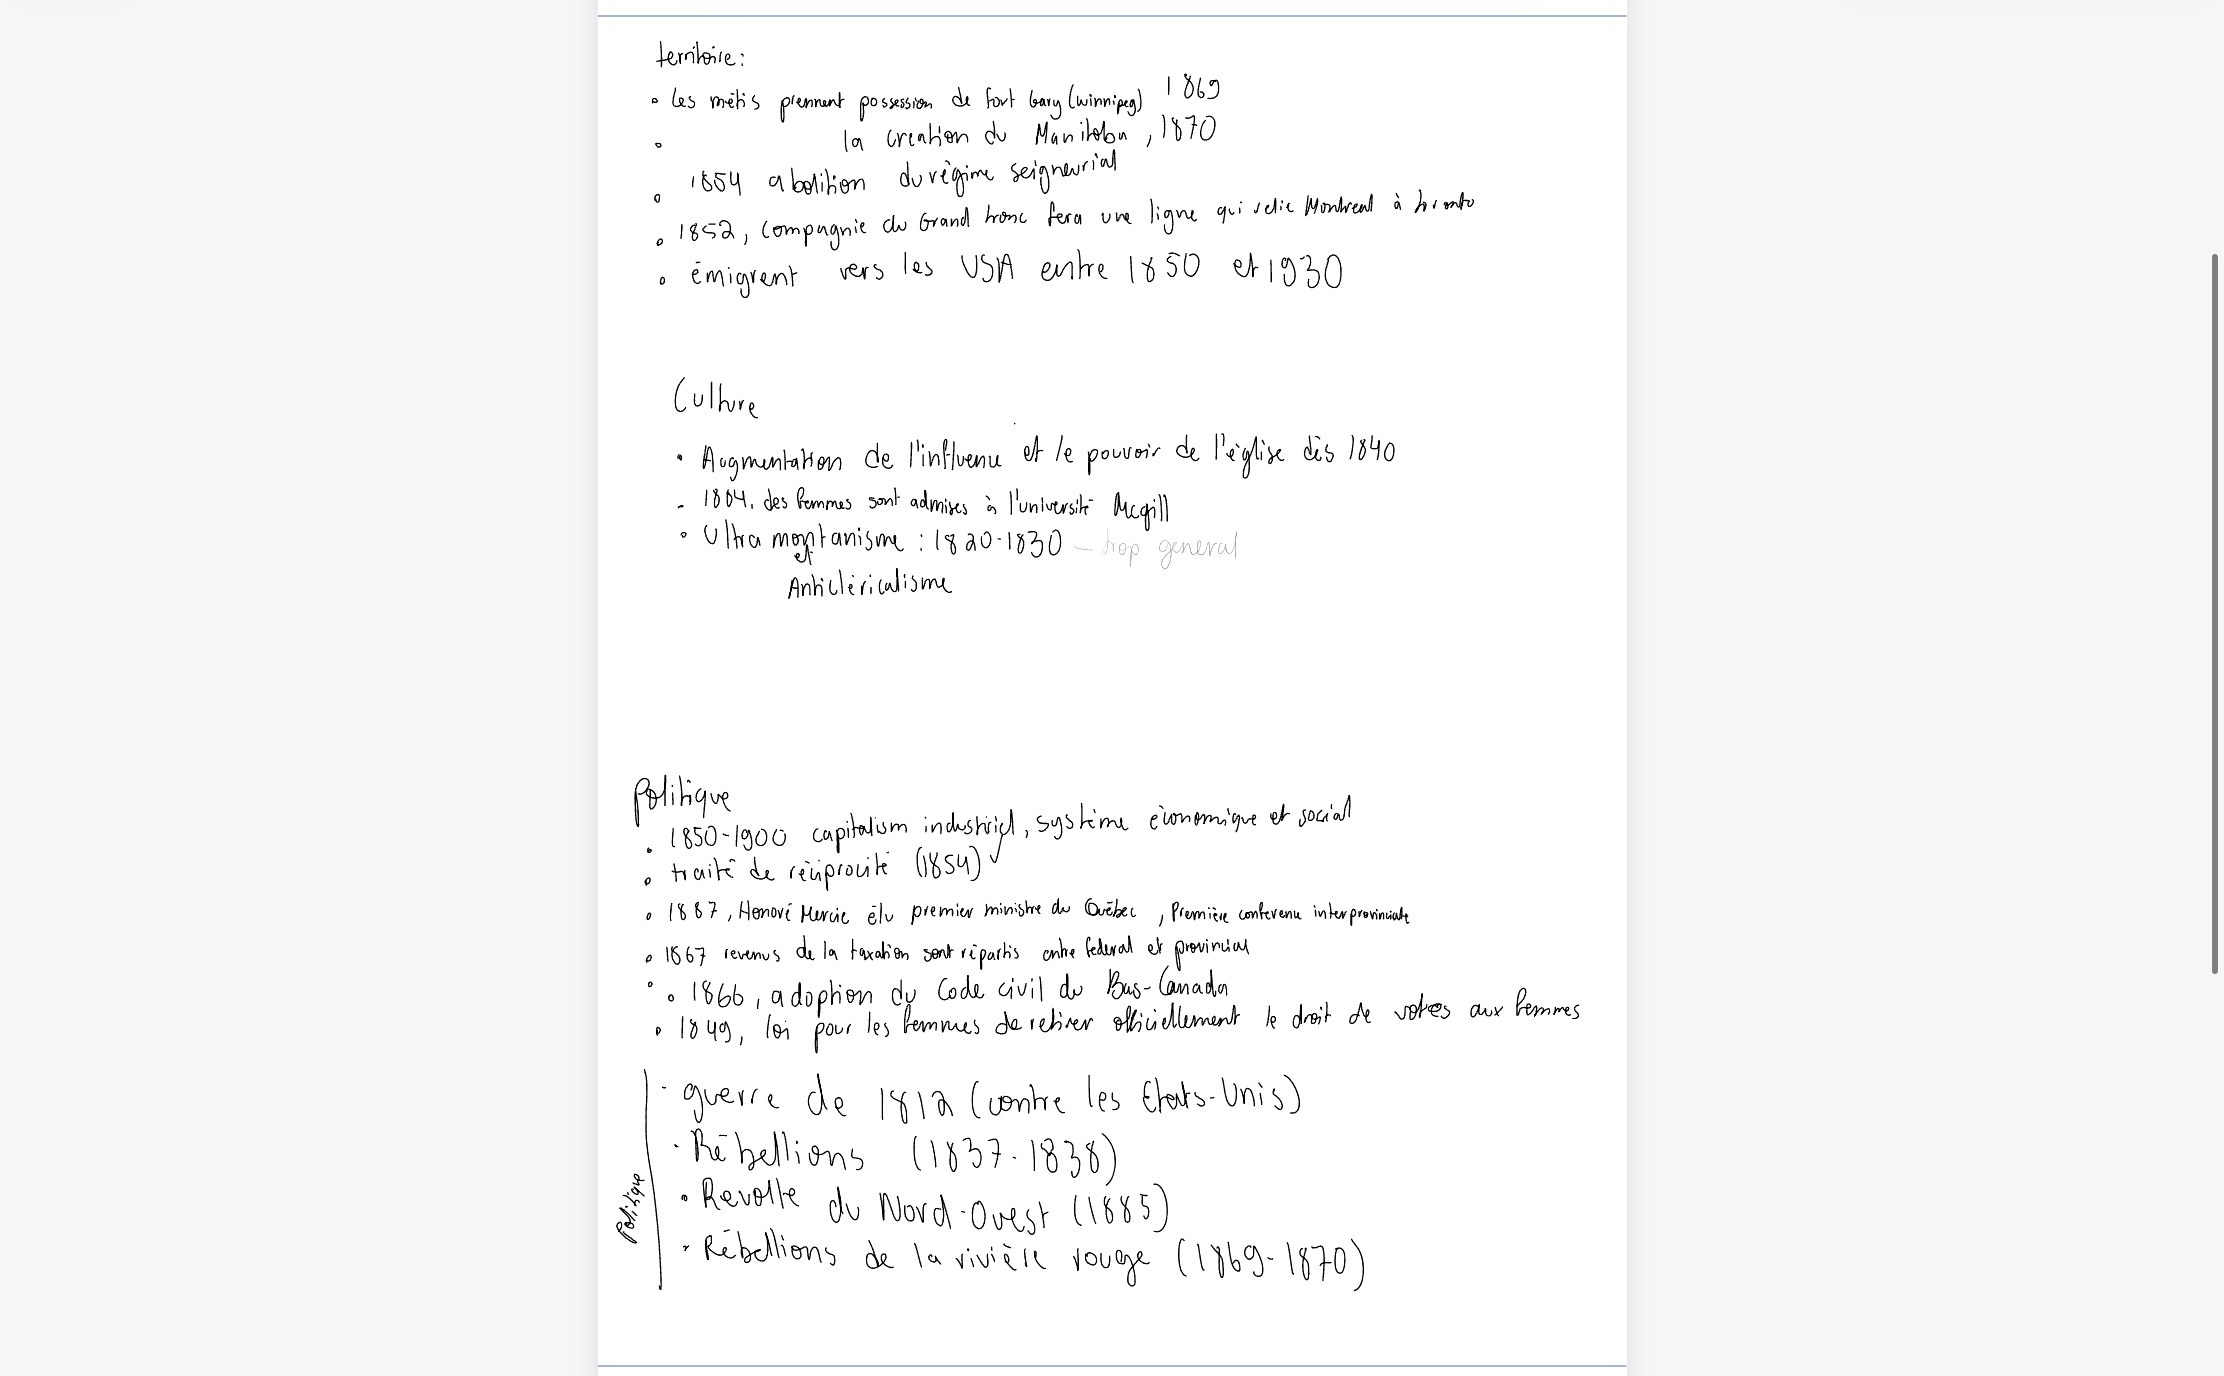 territoire:
• Les métis prennent possession de Fort Gary (Winnipeg) 1869
• la creation du Manitoba, 1870
• 1854 abolition du régime seigneurial
• 1852, Compagnie du Grand tronc fera une ligne qui relie Montreal à toronto
• émigrent vers les USA entre 1850 et 1930
Culture
• Augmentation de l'influence et le pouvoir de l'église dès 1840
- 1884, des femmes sont admises à l'université Mcgill
• Ultra montanisme : 1820-1830 – trop general
et
Anticléricalisme
Politique
• 1850-1900 capitalism industriel, système économique et social
• traité de réciprocité (1854) ✓
• 1887, Honoré Mercie élu premier ministre du Québec, Première conference interprovinciale
• 1867 revenus de la taxation sont répartis entre federal et provincial
• 1866, adoption du Code civil du Bas-Canada
• 1849, loi pour les femmes de retirer officiellement le droit de votes aux femmes
Politique
• guerre de 1812 (contre les Etats-Unis)
• Rébellions (1837-1838)
• Revolte du Nord-Ouest (1885)
• Rébellions de la rivière rouge (1869-1870)